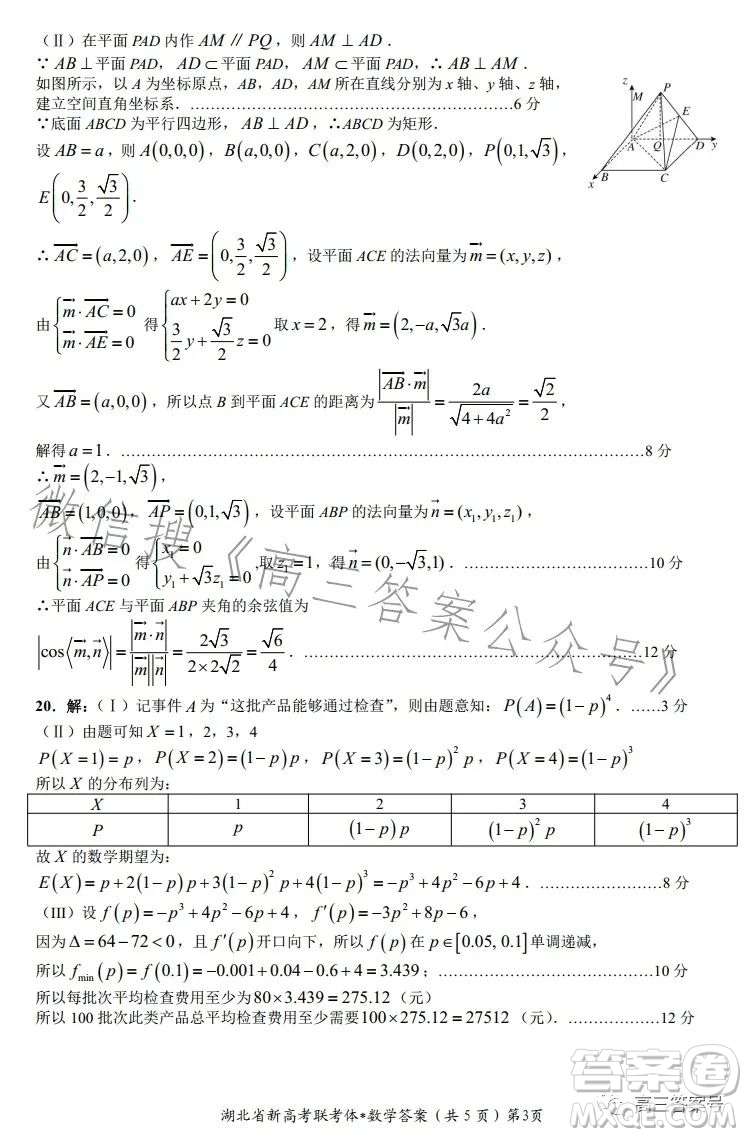 (Ⅱ)在平面 PAD 内作 AM∥PQ,则 AM⊥AD.
∵AB⊥平面 PAD,AD⊂平面 PAD,AM⊂平面 PAD,∴AB⊥AM.
如图所示,以 A 为坐标原点,AB,AD,AM 所在直线分别为 x 轴、y 轴、z 轴,
建立空间直角坐标系.………………………………………………6 分
∵底面 ABCD 为平行四边形,AB⊥AD,∴ABCD 为矩形.
设 AB=a,则 A(0,0,0),B(a,0,0),C(a,2,0),D(0,2,0),P(0,1,√3),
E(0,3/2,√3/2).
z
M
P
E
A
Q
D
y
B
C
x
∴AC→=(a,2,0),AE→=(0,3/2,√3/2),设平面 ACE 的法向量为 m→=(x,y,z),
由{m→·AC→=0 m→·AE→=0 得{ax+2y=0 3/2 y+√3/2 z=0 取 x=2,得 m→=(2,-a,√3a).
又 AB→=(a,0,0),所以点 B 到平面 ACE 的距离为 |AB→·m→|/|m→|=2a/√(4+4a²)=√2/2,
解得 a=1.………………………………………………………………8 分
∴m→=(2,-1,√3),
AB→=(1,0,0),AP→=(0,1,√3),设平面 ABP 的法向量为 n→=(x₁,y₁,z₁),
由{n→·AB→=0 n→·AP→=0 得{x₁=0 y₁+√3z₁=0,取 z₁=1,得 n→=(0,-√3,1).……………………10 分
∴平面 ACE 与平面 ABP 夹角的余弦值为
|cos⟨m→,n→⟩|=|m→·n→|/|m→||n→|=2√3/(2×2√2)=√6/4.………………………………………12 分
20.解:(Ⅰ)记事件 A 为“这批产品能够通过检查”,则由题意知:P(A)=(1-p)⁴.……3 分
(Ⅱ)由题可知 X=1,2,3,4
P(X=1)=p,P(X=2)=(1-p)p,P(X=3)=(1-p)²p,P(X=4)=(1-p)³
所以 X 的分布列为:
X 1 2 3 4
P p (1-p)p (1-p)²p (1-p)³
故 X 的数学期望为:
E(X)=p+2(1-p)p+3(1-p)²p+4(1-p)³=-p³+4p²-6p+4.………………8 分
(III)设 f(p)=-p³+4p²-6p+4,f′(p)=-3p²+8p-6,
因为 Δ=64-72<0,且 f′(p)开口向下,所以 f(p)在 p∈[0.05,0.1]单调递减,
所以 fmin(p)=f(0.1)=-0.001+0.04-0.6+4=3.439;……………………………10 分
所以每批次平均检查费用至少为 80×3.439=275.12(元)
所以 100 批次此类产品总平均检查费用至少需要 100×275.12=27512(元).………………12 分
微信搜《高三答案公众号》
湖北省新高考联考体*数学答案(共 5 页)第3页
高三答案号
答案圈
MXQE.COM